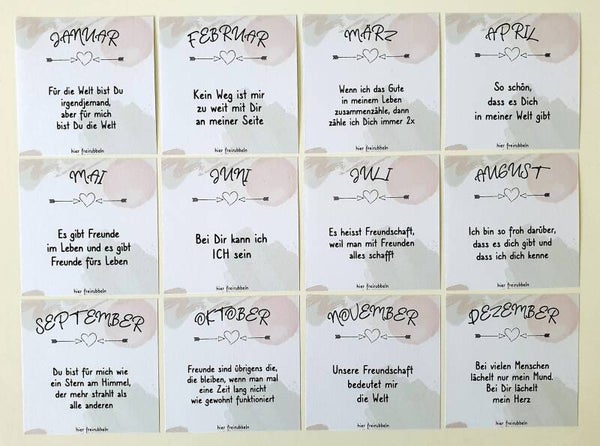 JANUAR
Für die Welt bist Du
irgendjemand,
aber für mich
bist Du die Welt
hier freirubbeln
FEBRUAR
Kein Weg ist mir
zu weit mit Dir
an meiner Seite
hier freirubbeln
MÄRZ
Wenn ich das Gute
in meinem Leben
zusammenzähle, dann
zähle ich Dich immer 2x
hier freirubbeln
APRIL
So schön,
dass es Dich
in meiner Welt gibt
hier freirubbeln
MAI
Es gibt Freunde
im Leben und es gibt
Freunde fürs Leben
hier freirubbeln
JUNI
Bei Dir kann ich
ICH sein
hier freirubbeln
JULI
Es heisst Freundschaft,
weil man mit Freunden
alles schafft
hier freirubbeln
AUGUST
Ich bin so froh darüber,
dass es dich gibt und
dass ich dich kenne
hier freirubbeln
SEPTEMBER
Du bist für mich wie
ein Stern am Himmel,
der mehr strahlt als
alle anderen
hier freirubbeln
OKTOBER
Freunde sind übrigens die,
die bleiben, wenn man mal
eine Zeit lang nicht
wie gewohnt funktioniert
hier freirubbeln
NOVEMBER
Unsere Freundschaft
bedeutet mir
die Welt
hier freirubbeln
DEZEMBER
Bei vielen Menschen
lächelt nur mein Mund.
Bei Dir lächelt
mein Herz
hier freirubbeln